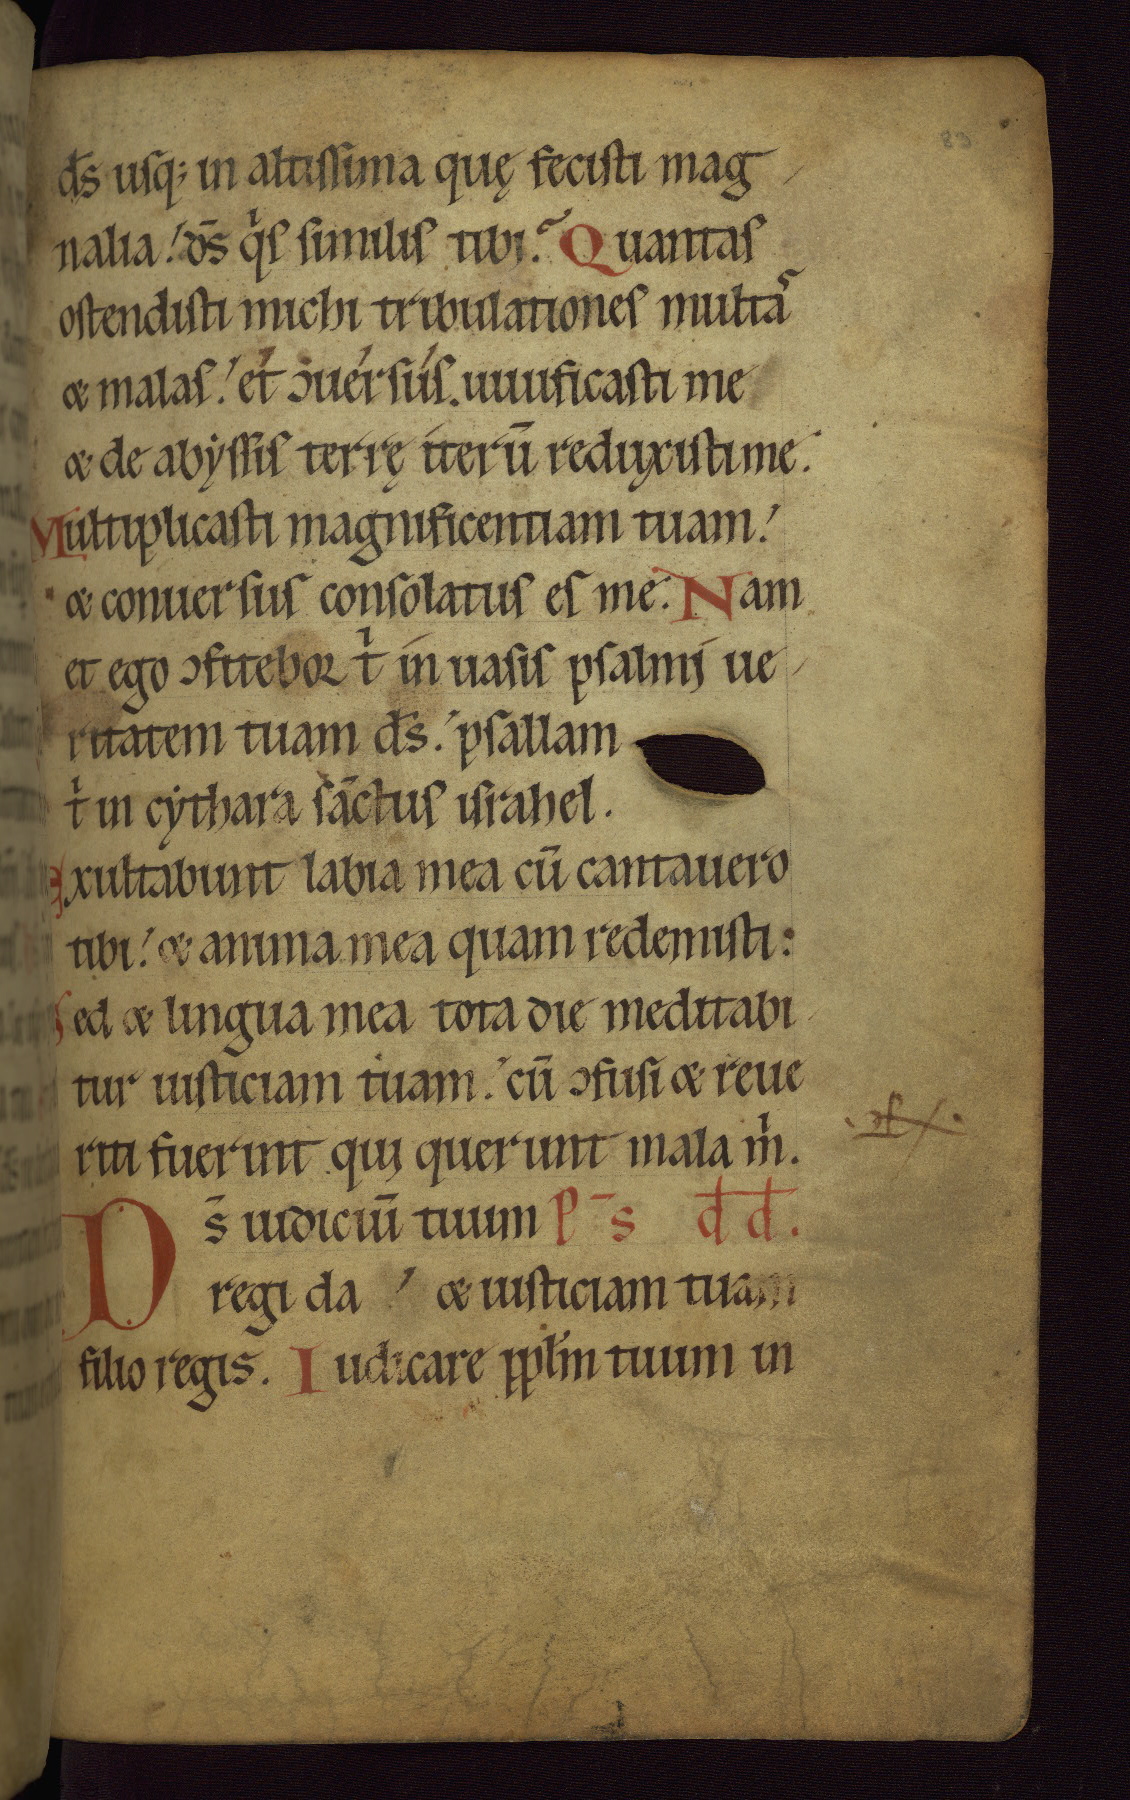 83
dſ̄ uſq; in altiſſima quę feciſti mag
nalia! ds̄ q̇ſ ſimiliſ tibi? Quantaſ
oſtendiſti michi tribulationeſ multaſ
& malaſ! et ↄuerſuſ. uiuificaſti me
& de abẏſſiſ terrę iterū reduxiſti me.
Multiplicaſti magnificentiam tuam!
& conuerſuſ conſolatuſ eſ me. Nam
et ego ↄfitebor t̄ in uaſiſ pſalmi ue
ritatem tuam dſ̄. pſallam
t̄ in cẏthara ſāctuſ iſrahel.
Exultabunt labia mea cū cantauero
tibi! & anima mea quam redemiſti:
Sed & lingua mea tota die meditabi
tur iuſticiam tuam. cū ↄfuſi & reue
riti fuerint qui querunt mala m̄.
Ds̄ iudiciū tuum P̄s d̄d̄.
regi da ! & iuſticiam tuam
filio regiſ. Iudicare pplm̄ tuum in